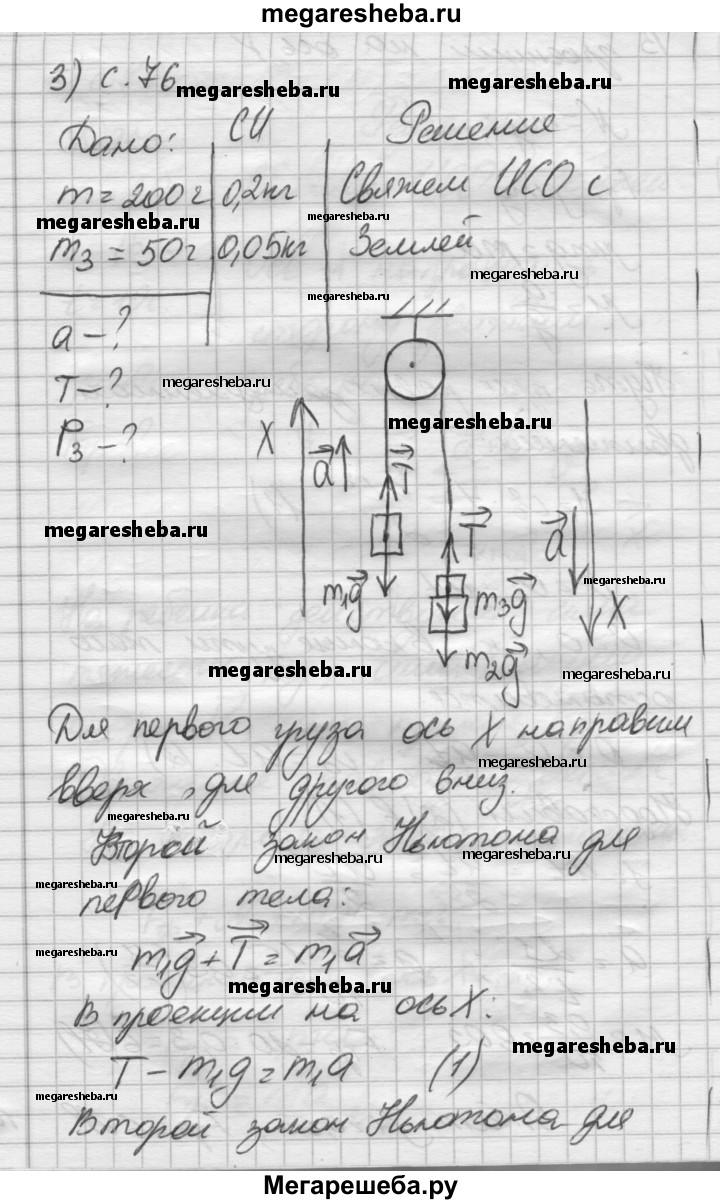 megaresheba.ru
3) с. 76
megaresheba.ru megaresheba.ru
Дано: СИ Решение
m = 200 г 0,2 кг Свяжем ИСО с
megaresheba.ru megaresheba.ru
m₃ = 50 г 0,05 кг Землей
megaresheba.ru
megaresheba.ru
a – ?
T – ? megaresheba.ru
P₃ – ? megaresheba.ru
X a⃗ T⃗
megaresheba.ru
T⃗ a⃗
megaresheba.ru
m₁g⃗ m₃g⃗ X
m₂g⃗
megaresheba.ru megaresheba.ru
Для первого груза ось X направим
megaresheba.ru
вверх, для другого вниз.
megaresheba.ru
Второй закон Ньютона для
megaresheba.ru megaresheba.ru
megaresheba.ru
первого тела:
megaresheba.ru
m₁g⃗ + T⃗ = m₁a⃗
megaresheba.ru
В проекции на ось X:
megaresheba.ru
T – m₁g = m₁a (1)
megaresheba.ru
Второй закон Ньютона для
Мегарешеба.ру